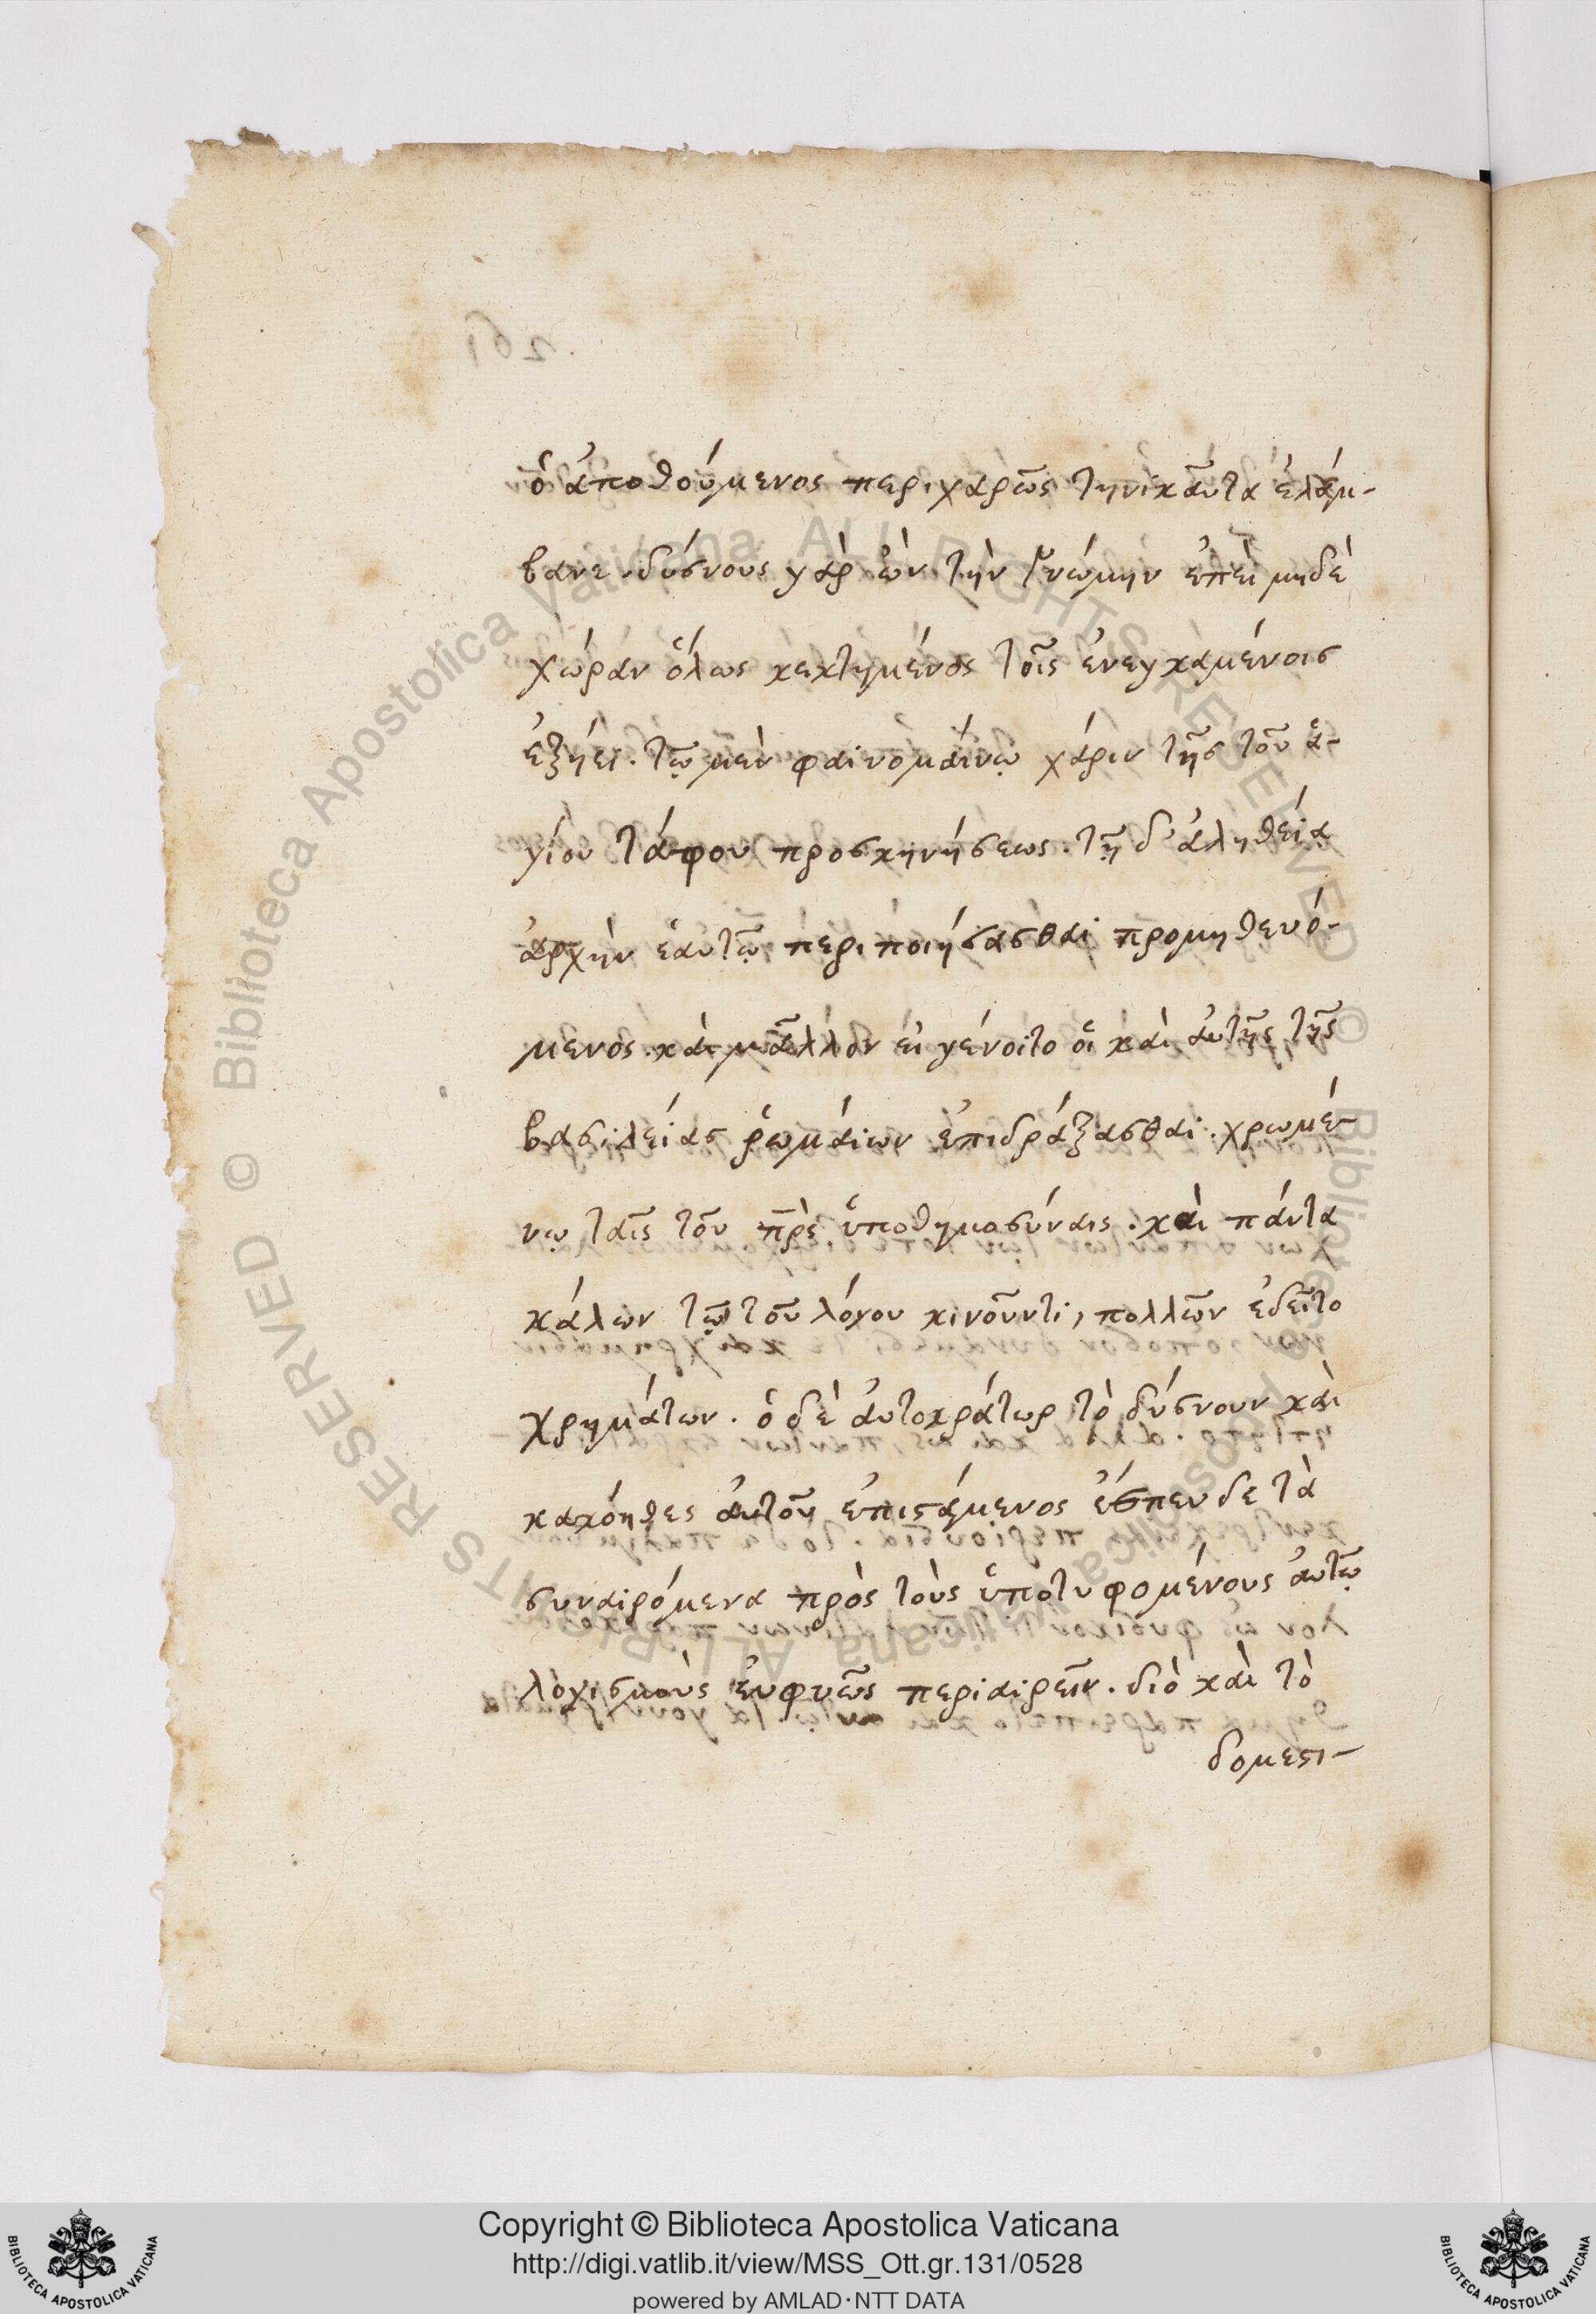 ὁ ἀποθούμενος περιχαρῶς τηνικαῦτα ἐλάμ-
βανε. δύσνους γὰρ ὢν τὴν γνώμην ἐπεὶ μηδὲ
χώραν ὅλως κεκτημένος τοῖς ἐνεγκαμένοις
ἐξήει. τῷ μὲν φαινομαίνῳ χάριν τῆς τοῦ ἁ-
γίου τάφου προσκηνήσεως. τῇ δ' ἀληθείᾳ
ἀρχὴν ἑαυτῷ περιποιήσασθαι προμηθευό-
μενος. καὶ μᾶλλον εἰ γένοιτο οἷ καὶ αὐτῆς τῆς
βασιλείας ῥωμαίων ἐπιδράξασθαι. χρωμέ-
νῳ ταῖς τοῦ πρ̅ς ὑποθημοσύναις. καὶ πάντα
κάλων τῷ τοῦ λόγου κινοῦντι, πολλῶν ἐδεῖτο
χρημάτων. ὁ δὲ αὐτοκράτωρ τὸ δύσνουν καὶ
κακόηθες αὐτοῦ ἐπιστάμενος ἔσπευδε τὰ
συναιρόμενα πρὸς τοὺς ὑποτυφομένους αὐτῷ
λογισμοὺς εὐφυῶς περιαιρεῖν. διὸ καὶ τὸ
δομεστι-
Copyright © Biblioteca Apostolica Vaticana
http://digi.vatlib.it/view/MSS_Ott.gr.131/0528
powered by AMLAD·NTT DATA